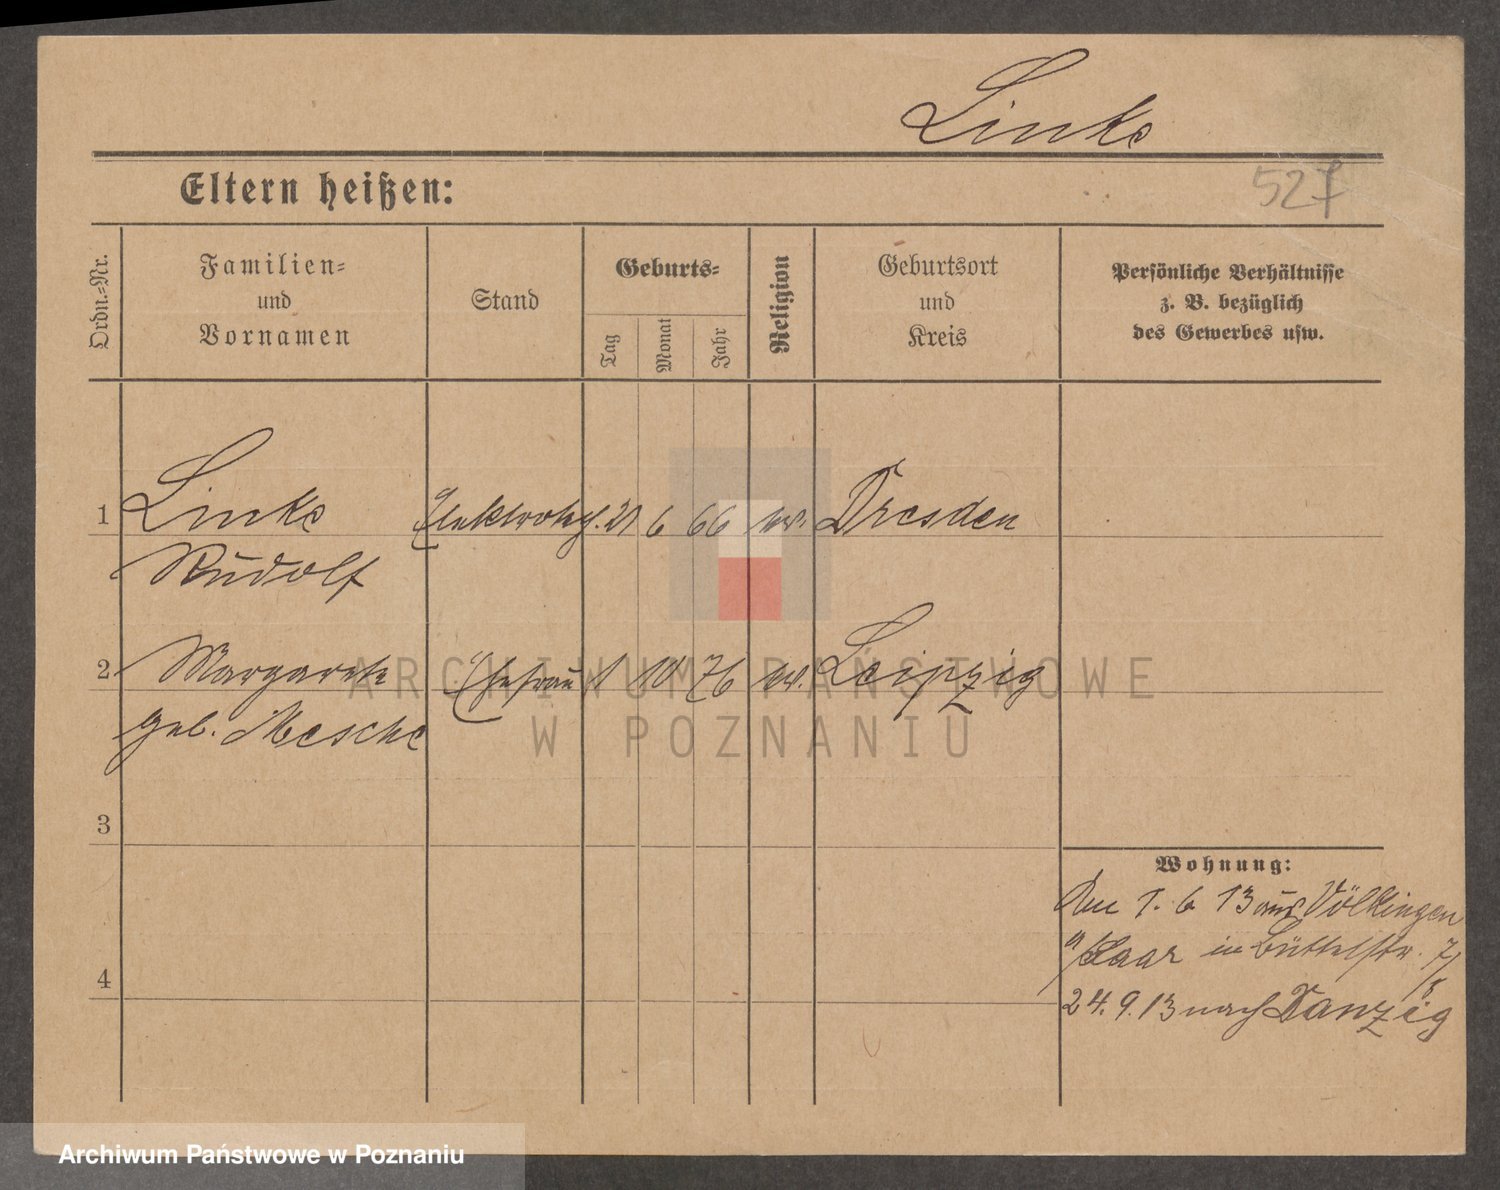 Linke
Eltern heißen:
527
Ordn.-Nr.
Familien-
und
Vornamen
Stand
Geburts-
Tag
Monat
Jahr
Religion
Geburtsort
und
Kreis
Persönliche Verhältnisse
z. B. bezüglich
des Gewerbes usw.
1 Linke 6 66 ev. Dresden
Rudolf
2 Margarete Ehefrau 1 10 76 ev. Leipzig
geb. Mesche
3
4
Wohnung:
Am 1. 6 13 aus Völklingen
a/Saar in Büttelstr. 7/8
24. 9. 13 nach Danzig
ARCHIWUM PAŃSTWOWE
W POZNANIU
Archiwum Państwowe w Poznaniu